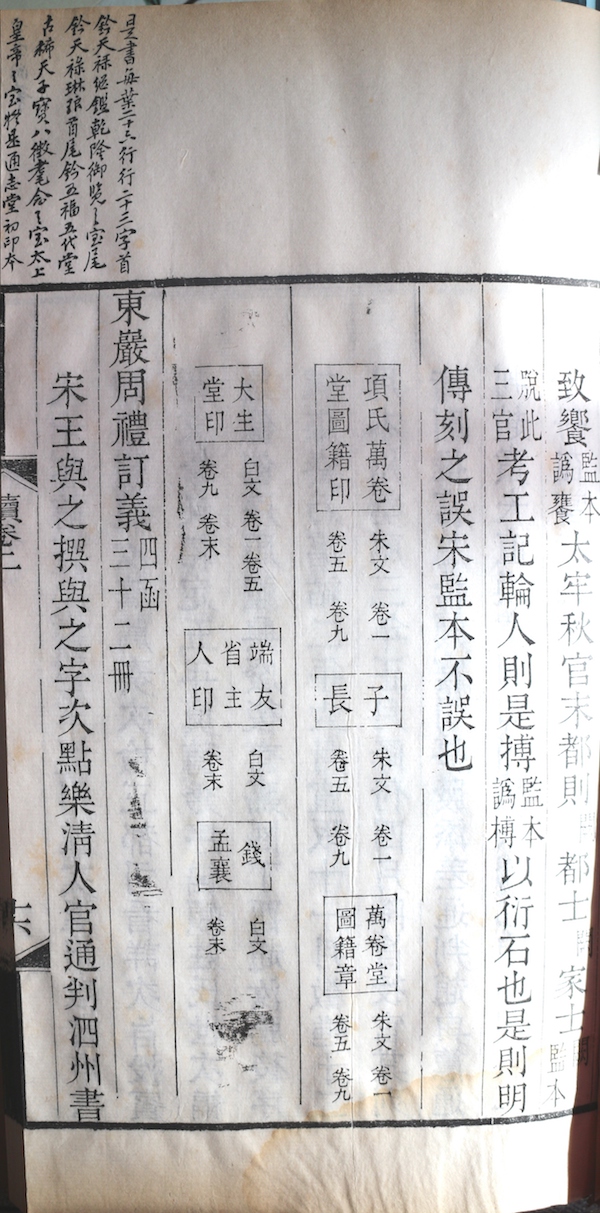 是書每葉二十六行行二十三字首
鈐天祿繼鑑乾隆御覽之宝尾
鈐天祿琳琅首尾鈐五福五代堂
古稀天子寶八徵耄念之宝太上
皇帝之宝将是通志堂初印本
致饗監本譌饔太牢秋官末都則闕都士闕家士闕監本
脫此三官考工記輪人則是摶監本譌槫以衍石也是則明
傳刻之誤宋監本不誤也
項氏萬卷堂圖籍印 朱文 卷一 卷五 卷九 子長 朱文 卷一 卷五 卷九 萬卷堂圖籍章 朱文 卷一 卷五 卷九
大生堂印 白文 卷一 卷五 卷九 卷末 端友省主人印 白文 卷末 錢孟襄 白文 卷末
東巖周禮訂義四函三十二冊
宋王與之撰與之字次點樂淸人官通判泗州書
續卷二